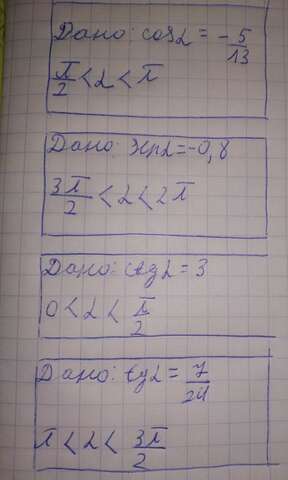 Дано: cosα = - 5/13
π/2 < α < π
Дано: sinα = -0,8
3π/2 < α < 2π
Дано: ctgα = 3
0 < α < π/2
Дано: tgα = 7/24
π < α < 3π/2